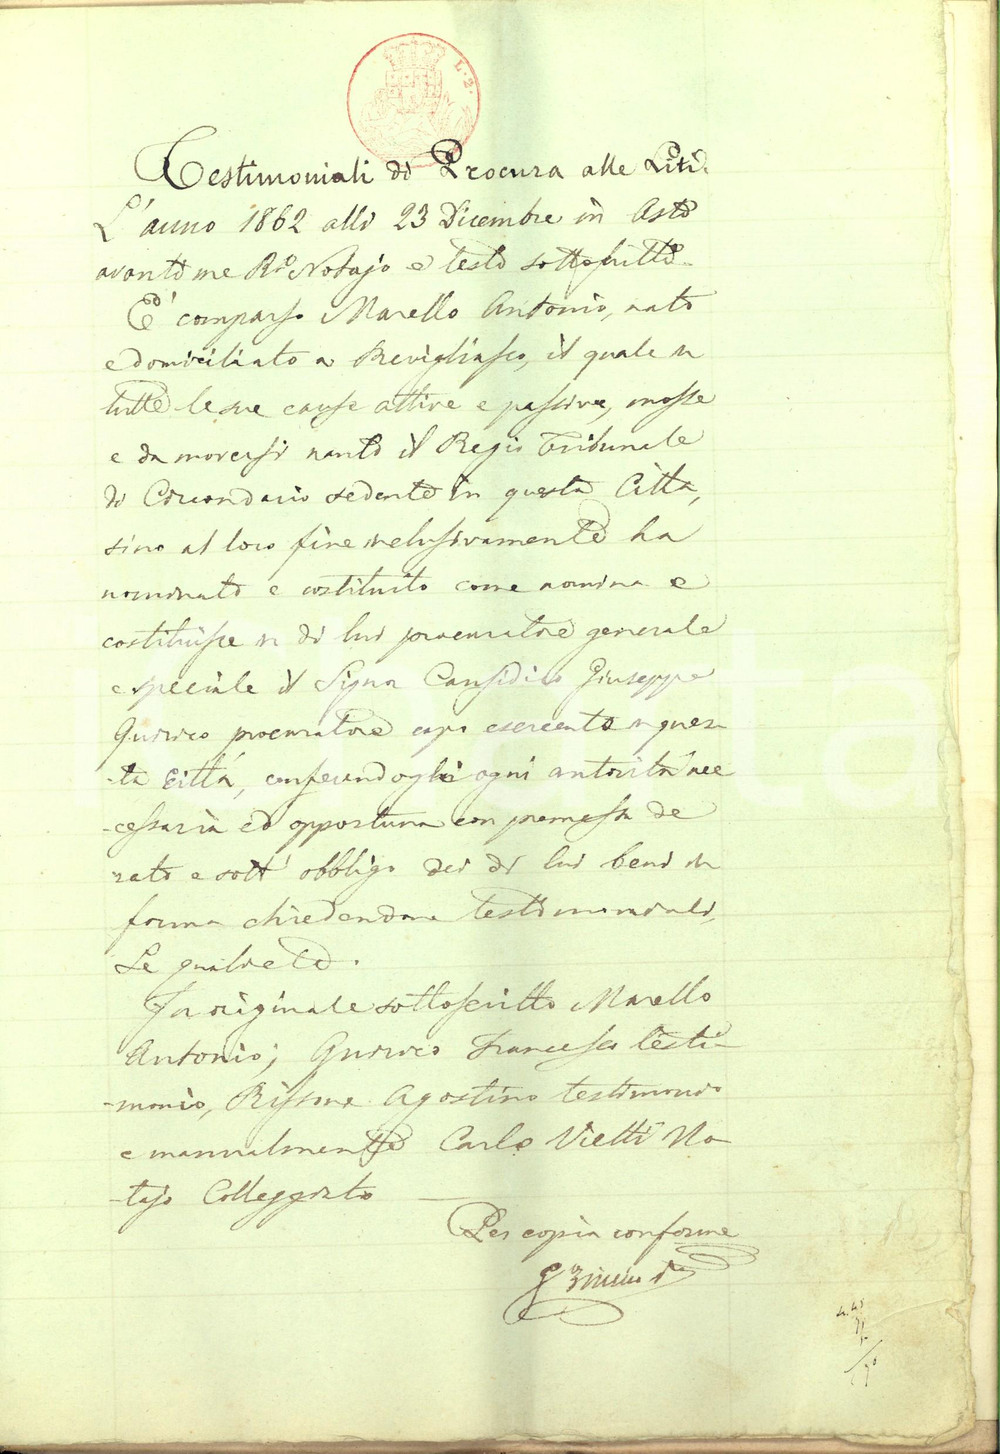 L. 2.
Testimoniali di Procura alle Liti.
L'anno 1862 alli 23 Dicembre in Asti
avanti me R.º Notajo e testi sottoscritti.
E' comparso Marello Antonio, nato
e domiciliato a Revigliasco, il quale in
tutte le sue cause attive e passive, mosse
e da moversi nanti il Regio Tribunale
di Circondario sedente in questa Città,
sino al loro fine inclusivamente ha
nominato e costituito come nomina e
costituisce in di lui procuratore generale
e speciale il Signor Causidico Giuseppe
procuratore capo esercente in ques-
-ta Città, conferendogli ogni autorità nec
-cessaria ed opportuna con promessa de
rato e sott' obbligo dei di lui beni in
forma chiedendone testimoniali,
Le quali etc.
In originale sottoscritto Marello
Antonio; Francesco testi-
-monio, Rissone Agostino testimonio
e manualmente Carlo Vietti No-
-tajo Colleggiato
Per copia conforme